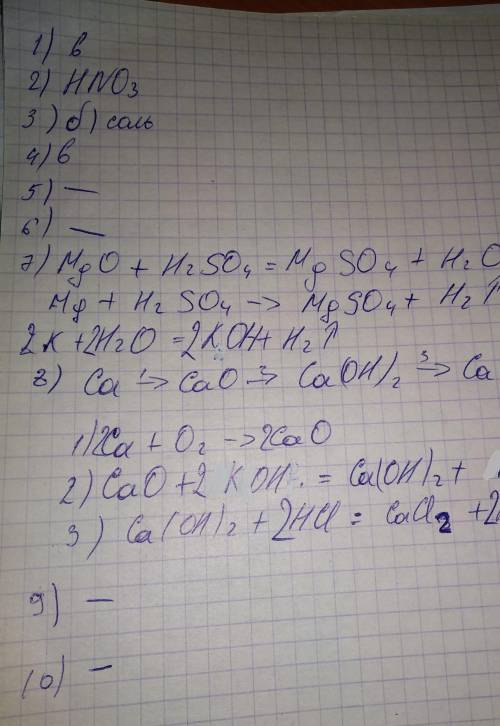 1) в
2) HNO3
3) б) соль
4) в
5) —
6) —
7) MgO + H2SO4 = MgSO4 + H2O
Mg + H2SO4 → MgSO4 + H2↑
2K + 2H2O = 2KOH + H2↑
8) Ca 1→ CaO 2→ Ca(OH)2 3→ Ca
1) 2Ca + O2 → 2CaO
2) CaO + 2 KOH = Ca(OH)2 +
3) Ca(OH)2 + 2HCl = CaCl2 + 2
9) —
10) —